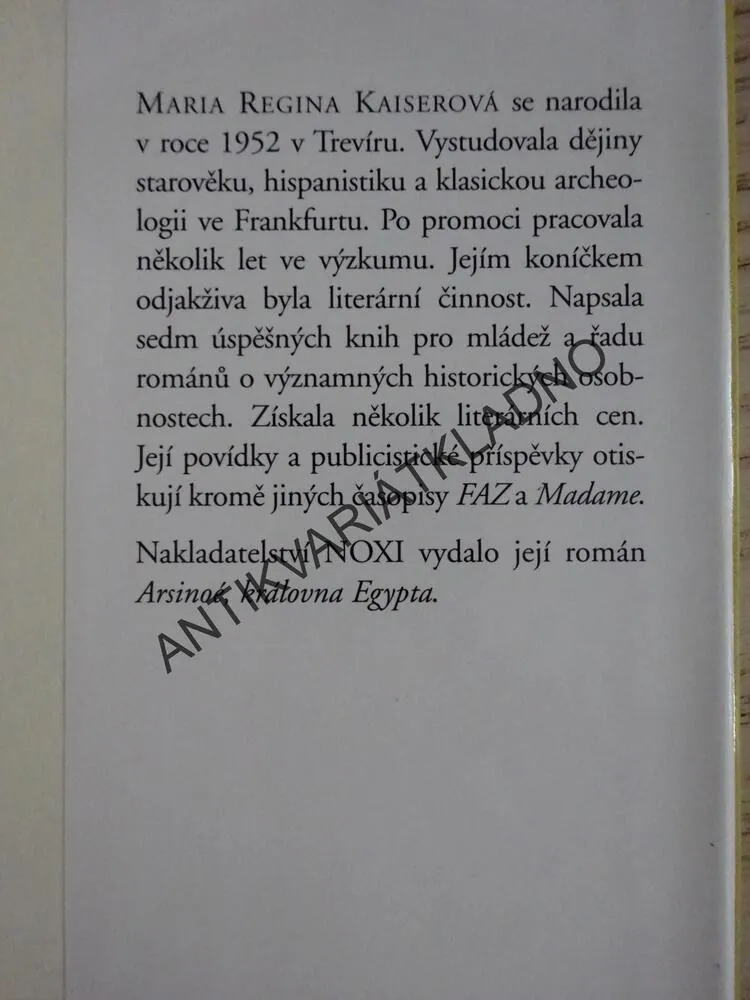 MARIA REGINA KAISEROVÁ se narodila
v roce 1952 v Trevíru. Vystudovala dějiny
starověku, hispanistiku a klasickou archeo-
logii ve Frankfurtu. Po promoci pracovala
několik let ve výzkumu. Jejím koníčkem
odjakživa byla literární činnost. Napsala
sedm úspěšných knih pro mládež a řadu
románů o významných historických osob-
nostech. Získala několik literárních cen.
Její povídky a publicistické příspěvky otis-
kují kromě jiných časopisy FAZ a Madame.
Nakladatelství NOXI vydalo její román
Arsinoé, královna Egypta.
ANTIKVARIÁTKLADNO